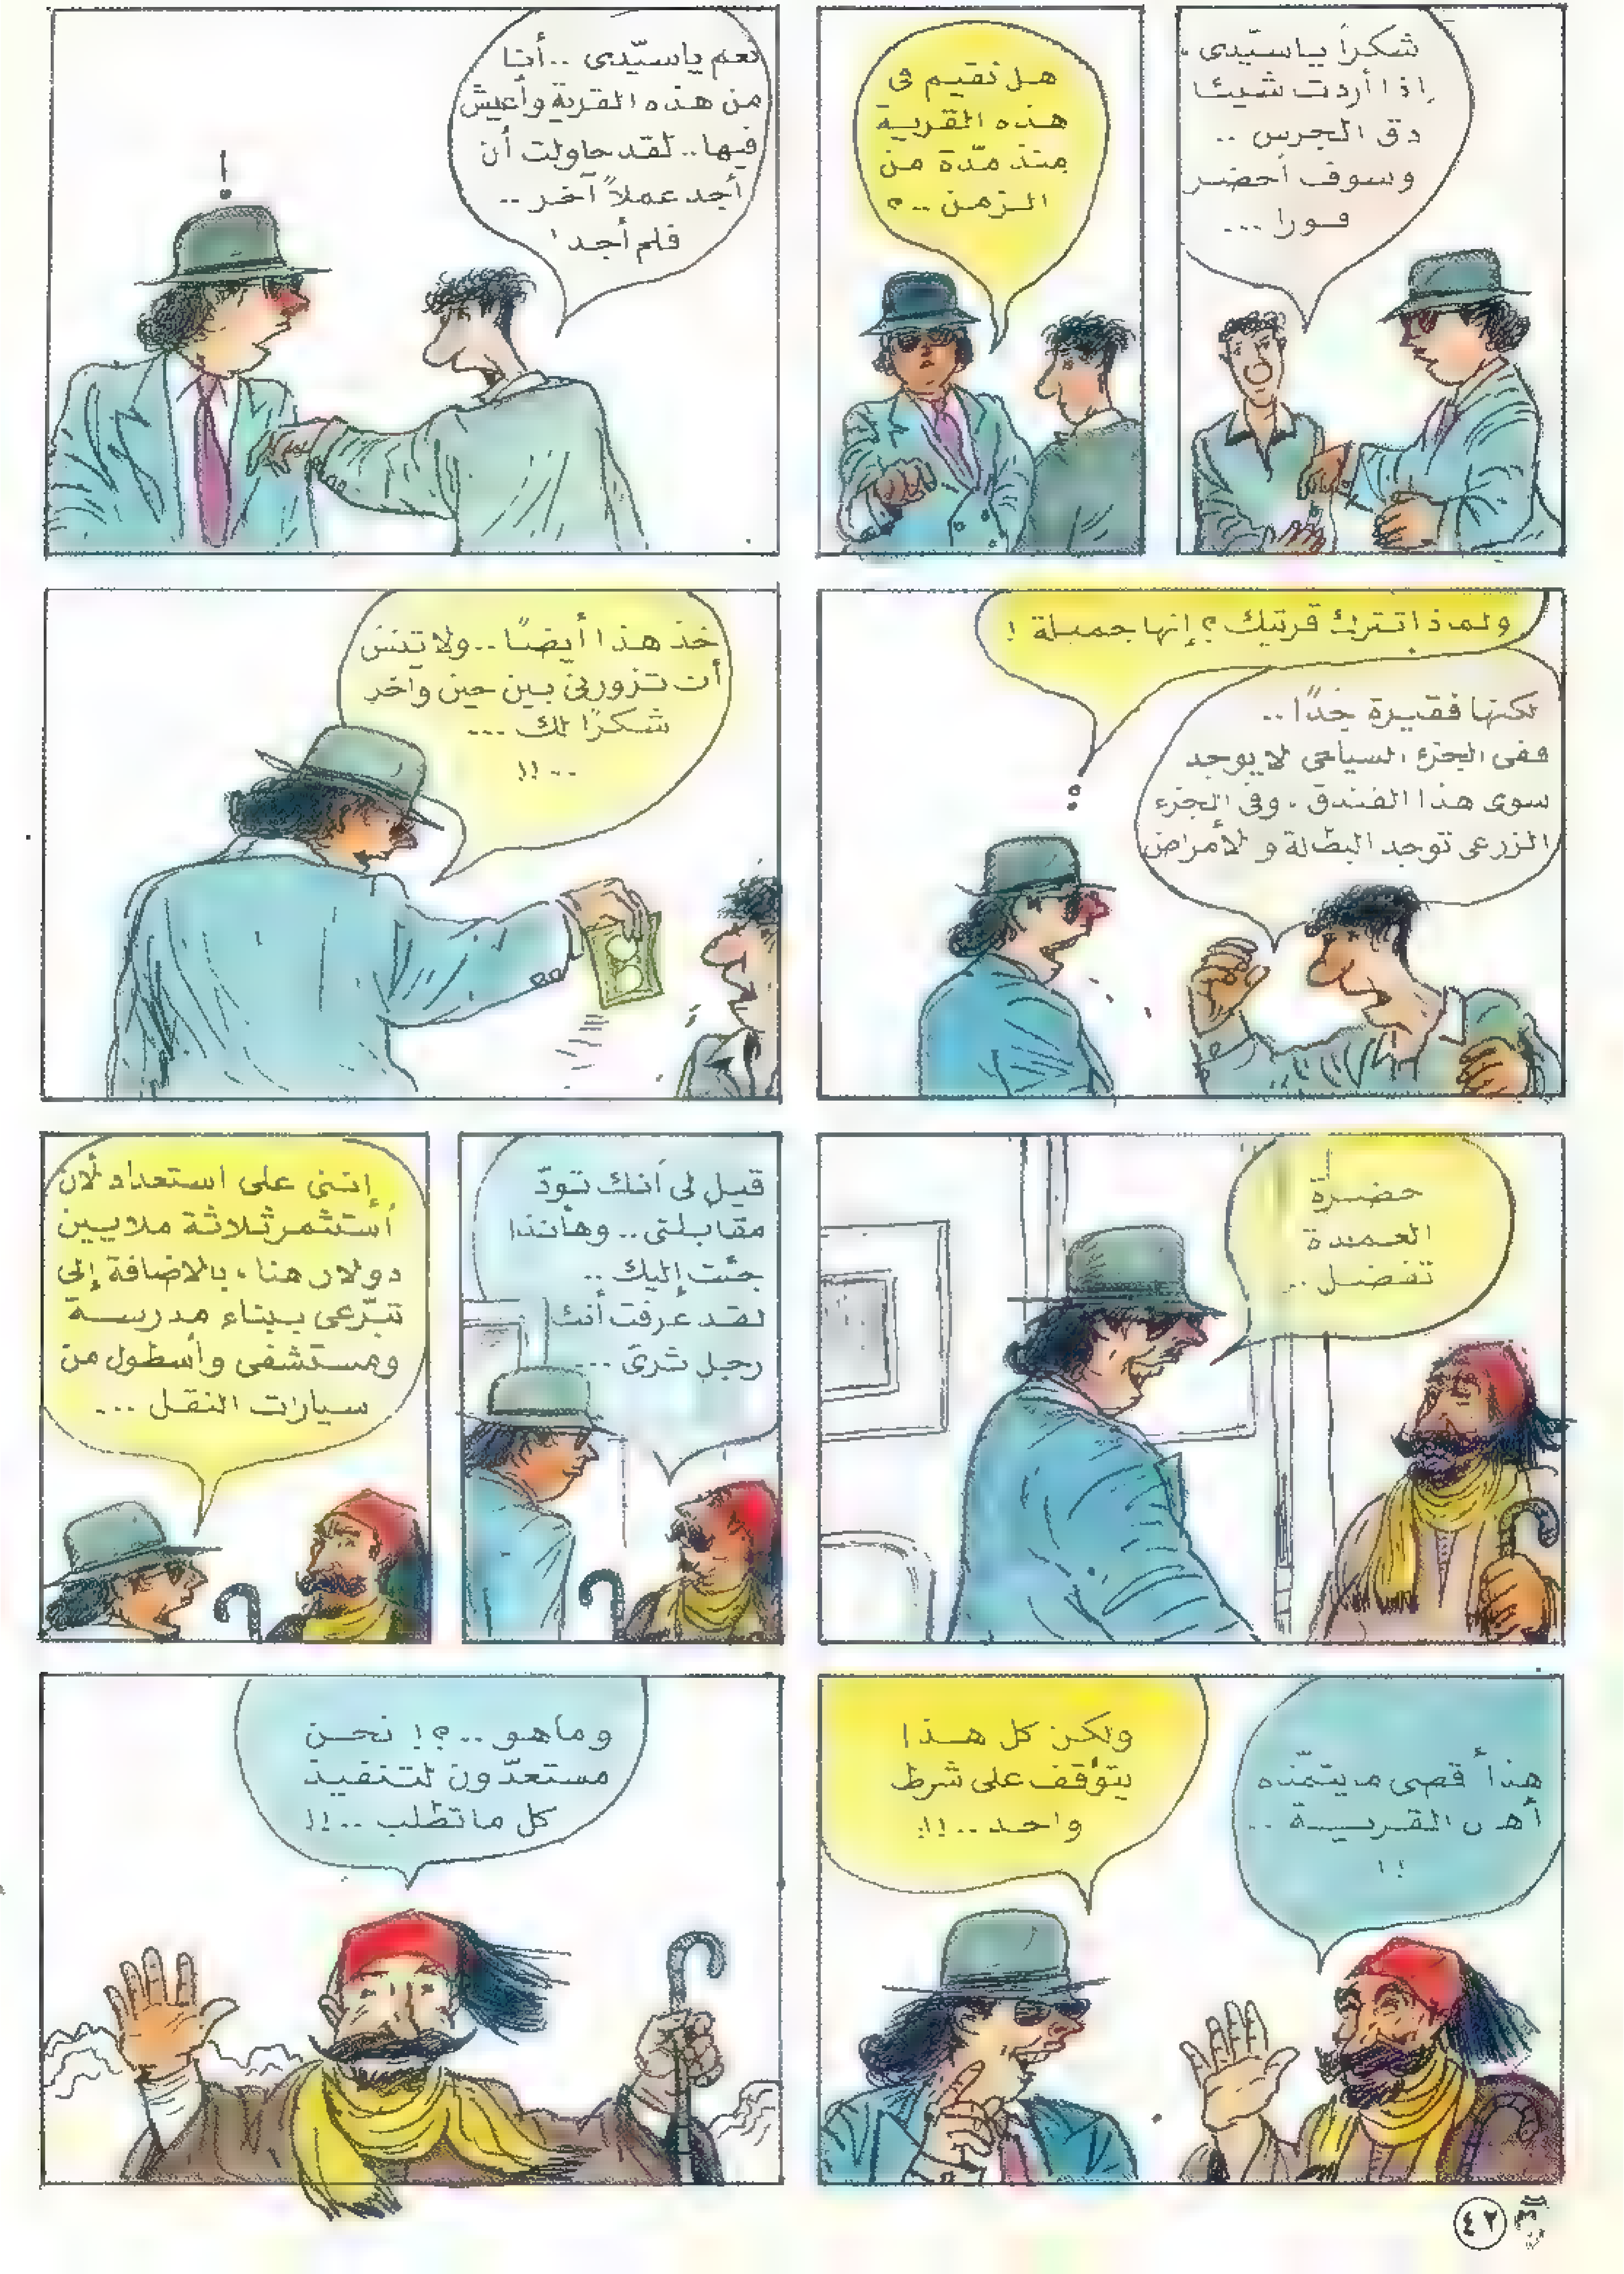 شكراً ياسيّدى .
إذا أردت شيئا
دق الجرس ..
وسوف أحضر
فورا ...
هل تقيم فى
هذه القرية
منذ مدّة من
الزمن ..؟
نعم ياسيّدى .. أنا
من هذه القرية وأعيش
فيها .. لقد حاولت أن
أجد عملاً آخر ..
فلم أجد !
!
ولماذا تترك قريتك ؟ إنها جميلة !
لكنها فقيرة جداً ..
ففى الجزء السياحى لا يوجد
سوى هذا الفندق . وفى الجزء
الزرعى توجد البطالة والأمراض
خذ هذا أيضًا .. ولا تنس
أن تزورنى بين حين وآخر
شكرًا لك ...
.. !!
حضرة
العمدة
تفضل ..
قيل لى أنك تودّ
مقابلتى .. وهأنذا
جئت إليك ..
لقد عرفت أنك
رجل ثرىّ ...
إننى على استعداد لأن
أستثمر ثلاثة ملايين
دولار هنا ، بالاضافة إلى
تبرّعى ببناء مدرسة
ومستشفى وأسطول من
سيارات النقل ...
هذا أقصى ما يتمنّاه
أهل القرية ..
!!
ولكن كل هذا
يتوقف على شرط
واحد .. !!
وما هو .. ؟! نحن
مستعدّون لتنفيذ
كل ما تطلب .. !!
٤٢